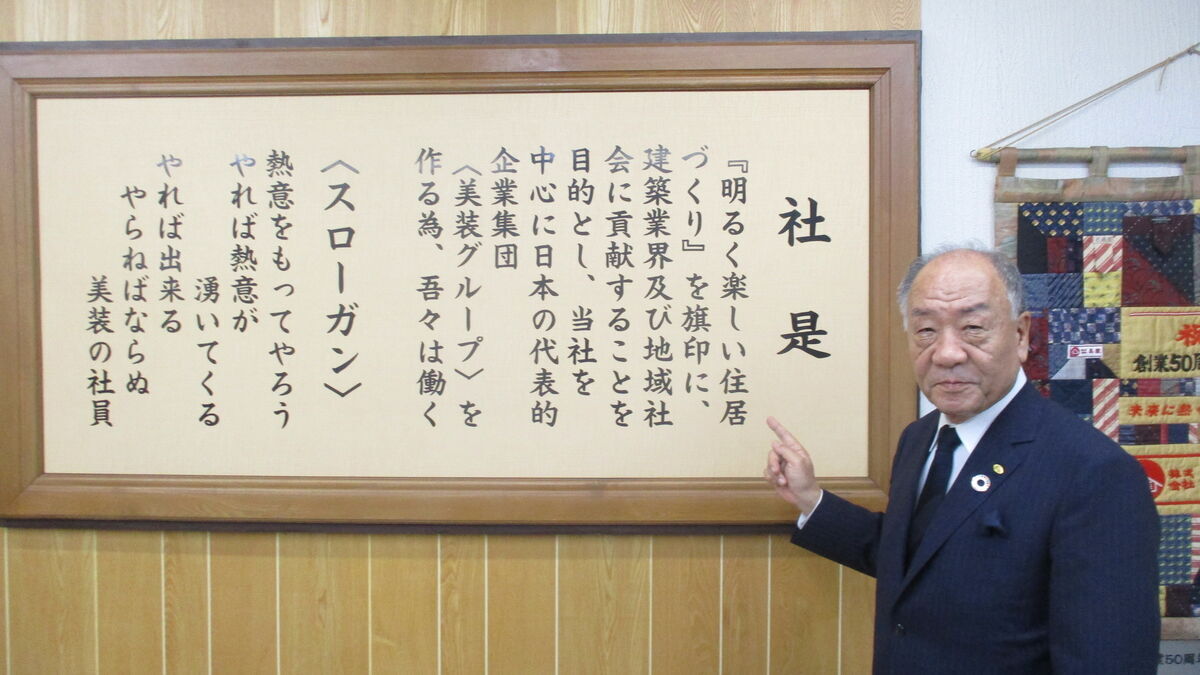 社是
『明るく楽しい住居
づくり』を旗印に、
建築業界及び地域社
会に貢献することを
目的とし、当社を
中心に日本の代表的
企業集団
〈美装グループ〉を
作る為、吾々は働く
〈スローガン〉
熱意をもってやろう
やれば熱意が
湧いてくる
やれば出来る
やらねばならぬ
美装の社員
祝
創業50周
未来に
株式
会社
業50周